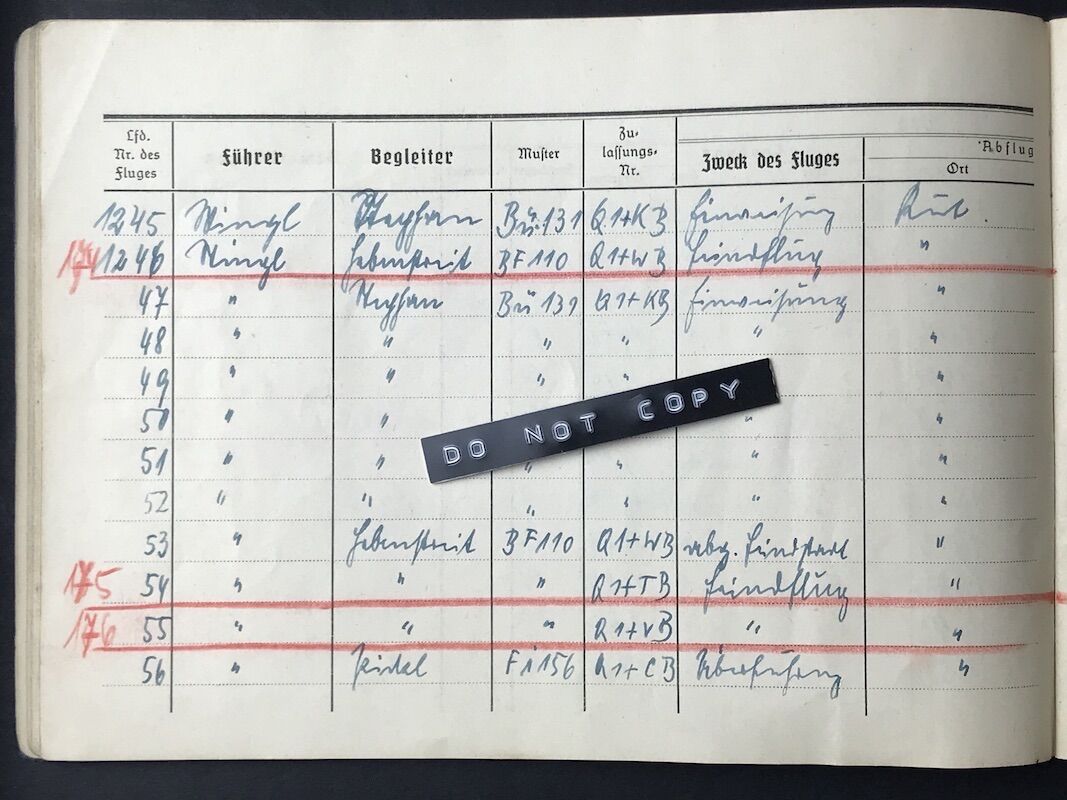 Lfd. Nr. des Fluges Führer Begleiter Muster Zulassungs-Nr. Zweck des Fluges Abflug Ort
1245 Stephan Bü 131 Q1+KB Einweisung
174 1246 Hebenstreit BF 110 Q1+WB Feindflug "
47 " Stephan Bü 131 Q1+KB Einweisung "
48 " " " " " "
49 " " " " "
50 " " " "
51 " " " " " "
52 " " " " " "
DO NOT COPY
53 " Hebenstreit BF 110 Q1+WB abg. Feindstart "
175 54 " " " Q1+TB Feindflug "
176 55 " " " Q1+VB " "
56 " Fi 156 Q1+CB Überführung "